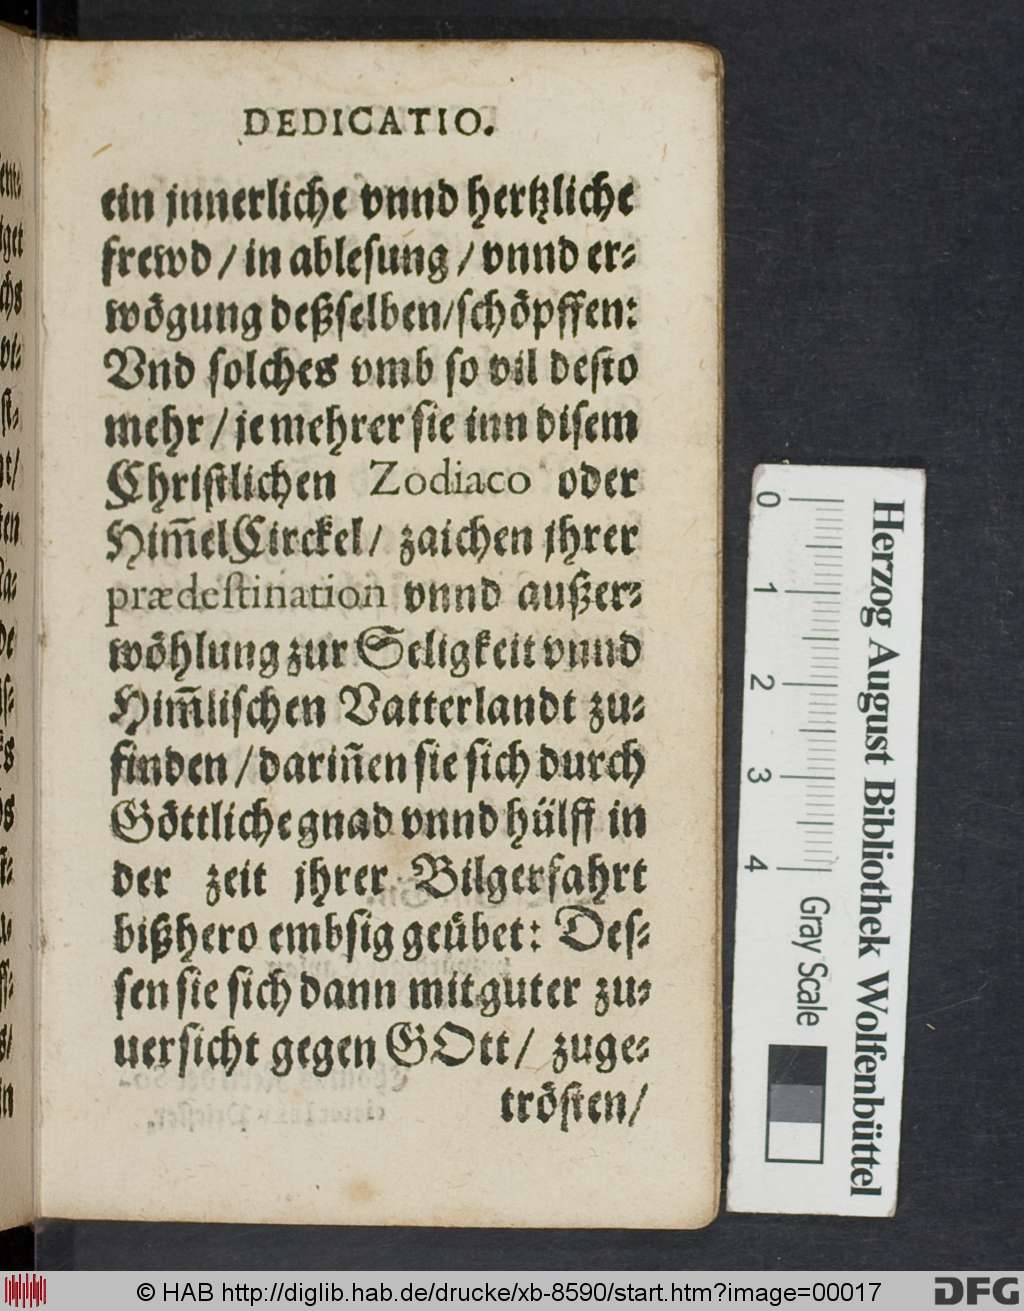 DEDICATIO.
ein jnnerliche vnnd hertzliche
frewd / in ablesung / vnnd er⸗
wögung deßselben/schöpffen:
Vnd solches vmb so vil desto
mehr / je mehrer sie inn disem
Christlichen Zodiaco oder
Him̃elCirckel/ zaichen jhrer
prædestination vnnd außer⸗
wöhlung zur Seligkeit vnnd
Him̃lischen Vatterlandt zu⸗
finden / dariñen sie sich durch
Göttliche gnad vnnd hülff in
der zeit jhrer Bilgerfahrt
bißhero embsig geübet: Des⸗
sen sie sich dann mit guter zu⸗
uersicht gegen GOtt/ zuge⸗
trösten/
0 1 2 3 4 Gray Scale
Herzog August Bibliothek Wolfenbüttel
© HAB http://diglib.hab.de/drucke/xb-8590/start.htm?image=00017
DFG